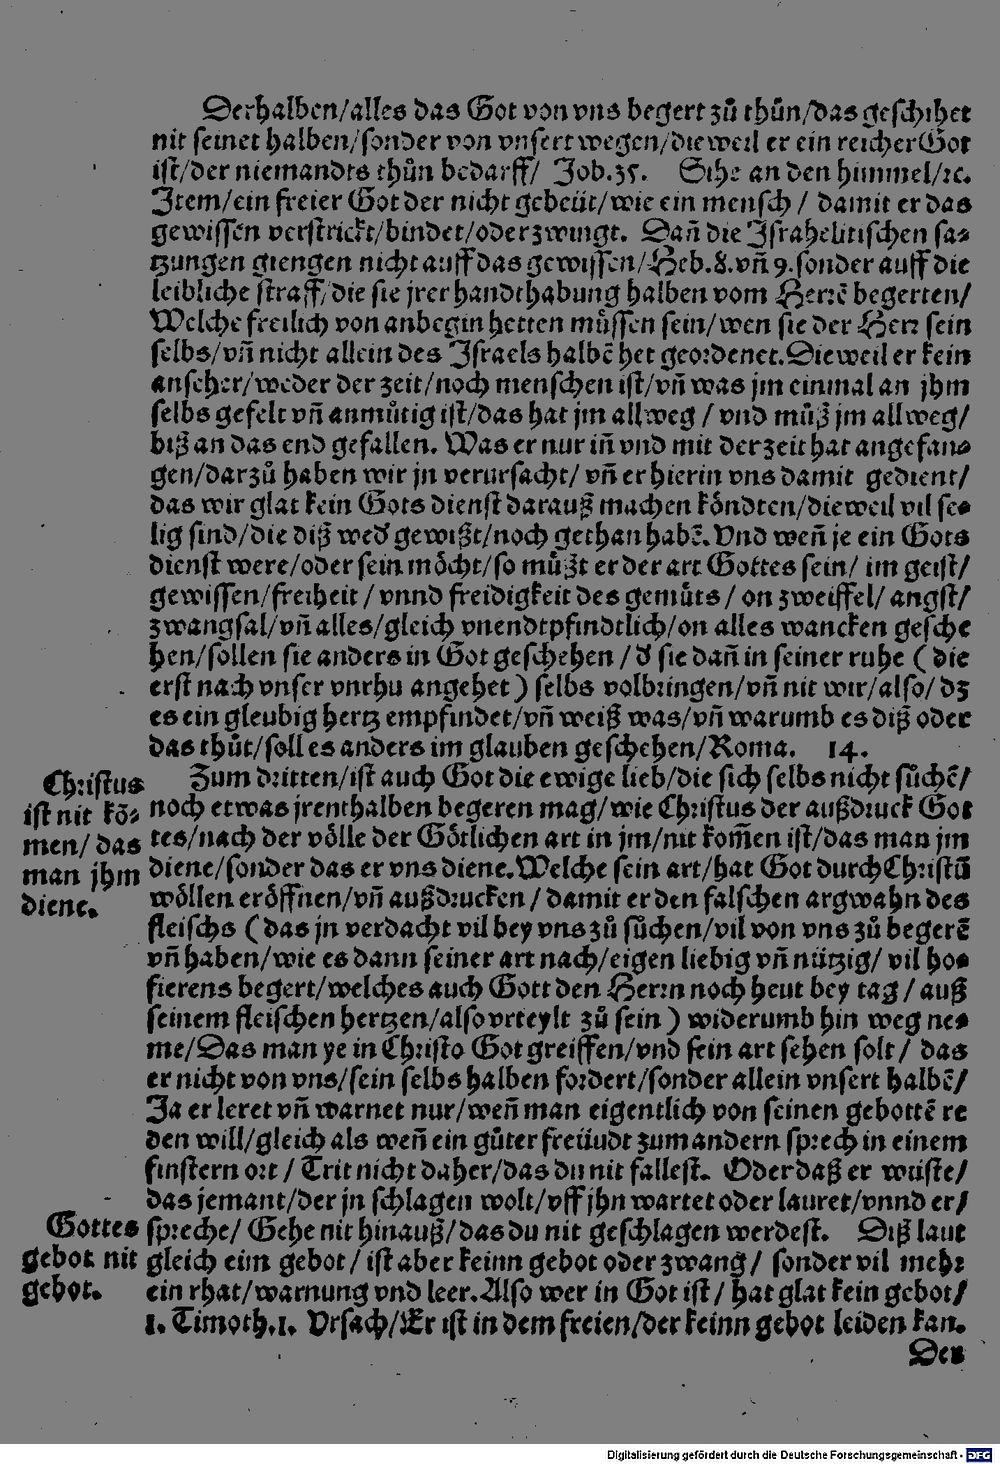 Derhalben/alles das Got von vns begert zů thůn/das geschihet
nit seinet halben/sonder von vnsert wegen/dieweil er ein reicher Got
ist/der niemandts thůn bedarff/ Job.35. Sihe an den himmel/ꝛc.
Item/ein freier Got der nicht gebeüt/wie ein mensch/ damit er das
gewissen verstrickt/bindet/oder zwingt. Dañ die Israhelitischen sa⸗
tzungen giengen nicht auff das gewissen/Heb.8.vñ 9.sonder auff die
leibliche straff/die sie jrer handthabung halben vom Herrẽ begerten/
Welche freilich von anbegin hetten müssen sein/wen sie der Herr sein
selbs/vñ nicht allein des Israels halbẽ het geordenet.Dieweil er kein
anseher/weder der zeit/noch menschen ist/vñ was jm einmal an jhm
selbs gefelt vñ anmůtig ist/das hat jm allweg/ vnd můß jm allweg/
biß an das end gefallen. Was er nur iñ vnd mit der zeit hat angefan⸗
gen/darzů haben wir jn verursacht/ vñ er hierin vns damit gedient/
das wir glat kein Gots dienst darauß machen köndten/dieweil vil se⸗
lig sind/die diß weď gewißt/noch gethan habẽ.Vnd weñ je ein Gots
dienst were/oder sein möcht/so můßt er der art Gottes sein/ im geist/
gewissen/freiheit/ vnnd freidigkeit des gemüts/ on zweiffel/ angst/
zwangsal/vñ alles/gleich vnendtpfindtlich/on alles wancken gesche
hen/sollen sie anders in Got geschehen/ď sie dañ in seiner ruhe (die
erst nach vnser vnrhu angehet) selbs volbringen/vñ nit wir/also/dz
es ein gleubig hertz empfindet/vñ weiß was/vñ warumb es diß oder
das thůt/soll es anders im glauben geschehen/Roma. 14.
Christus
ist nit kõ⸗
men/ das
man jhm
diene.
Zum dritten/ist auch Got die ewige lieb/die sich selbs nicht sůchẽ/
noch etwas jrenthalben begeren mag/wie Christus der außdruck Got
tes/nach der völle der Götlichen art in jm/nit kom̃en ist/das man jm
diene/sonder das er vns diene.Welche sein art/hat Got durch Christũ
wöllen eröffnen/vñ außdrucken/ damit er den falschen argwahn des
fleischs (das jn verdacht vil bey vns zů sůchen/vil von vns zů begerẽ
vñ haben/wie es dann seiner art nach/eigen liebig vñ nützig/ vil ho⸗
fierens begert/welches auch Gott den Herrn noch heut bey tag/ auß
seinem fleischen hertzen/also vrteylt zů sein) widerumb hin weg ne⸗
me/Das man ye in Christo Got greiffen/vnd sein art sehen solt/ das
er nicht von vns/sein selbs halben fordert/sonder allein vnsert halbẽ/
Ja er leret vñ warnet nur/weñ man eigentlich von seinen gebottẽ re
den will/gleich als weñ ein gůter freüudt zum andern sprech in einem
finstern ort/ Trit nicht daher/das du nit fallest. Oder daß er wüste/
das jemant/der jn schlagen wolt/vff jhn wartet oder lauret/vnnd er/
Gottes
gebot nit
gebot.
spreche/ Gehe nit hinauß/das du nit geschlagen werdest. Diß laut
gleich eim gebot/ ist aber keinn gebot oder zwang/ sonder vil mehr
ein rhat/warnung vnd leer.Also wer in Got ist/ hat glat kein gebot/
1. Timoth.1. Vrsach/Er ist in dem freien/der keinn gebot leiden kan.
Der
Digitalisierung gefördert durch die Deutsche Forschungsgemeinschaft - DFG